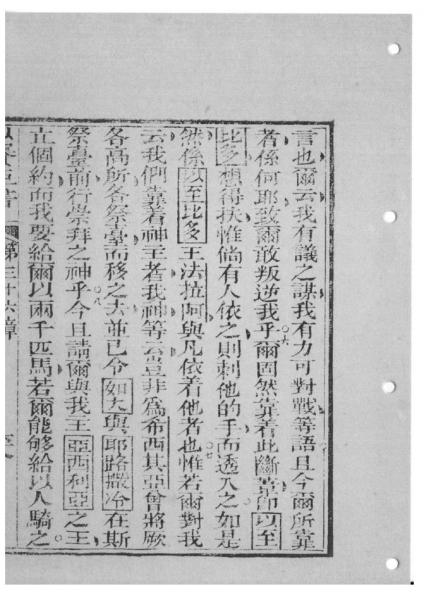 言也爾云我有議之謀我有力可對戰等語且今爾所靠
者係何耶致爾敢叛逆我乎○六爾固然靠着此斷葦即以至
比多想得扶惟倘有人依之則刺他的手而透入之如是
然係以至比多王法拉阿與凡依着他者也○七惟若爾對我
云我們靠着神主者我神等云豈非為希西其亞曾將厥
各高所各祭臺而移之去並已令如大與耶路撒冷在斯
祭臺前行崇拜之神乎○八今且請爾與我王亞西利亞之王
立個約而我要給爾以兩千匹馬若爾能够給以人騎之○
第三十六章